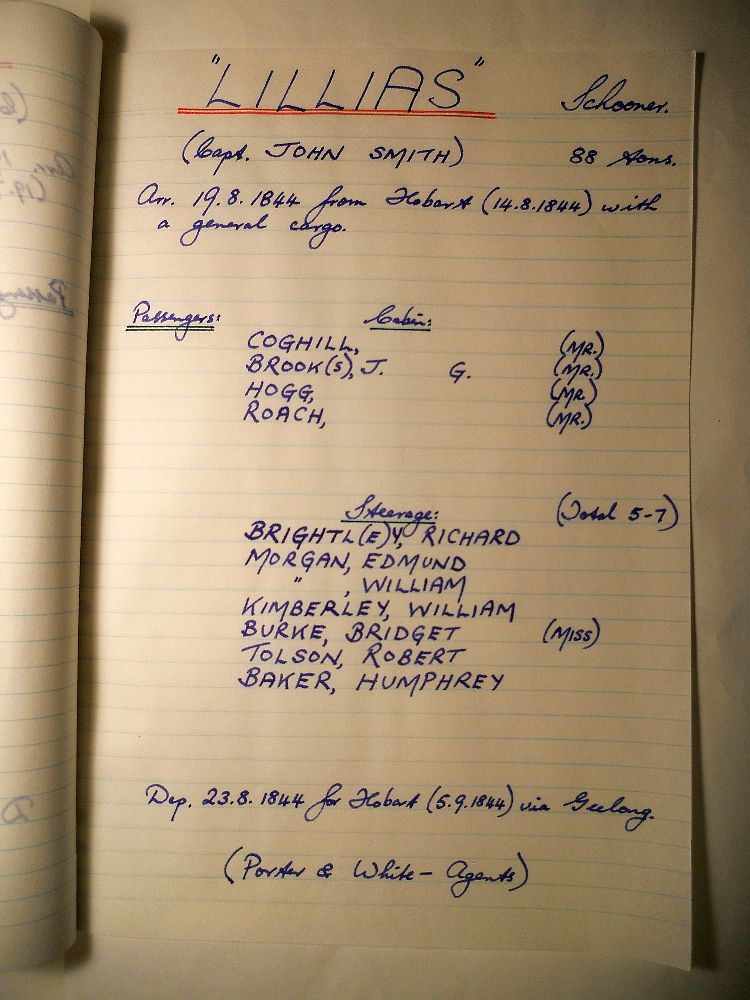 "LILLIAS" Schooner.
(Capt. JOHN SMITH) 88 tons.
Arr. 19.8.1844 from Hobart (14.8.1844) with
a general cargo.
Passengers: Cabin:
COGHILL, (MR.)
BROOK(S), J. G. (MR.)
HOGG, (MR.)
ROACH, (MR.)
Steerage: (Total 5-7)
BRIGHTL(E)Y, RICHARD
MORGAN, EDMUND
" , WILLIAM
KIMBERLEY, WILLIAM
BURKE, BRIDGET (MISS)
TOLSON, ROBERT
BAKER, HUMPHREY
Dep. 23.8.1844 for Hobart (5.9.1844) via Geelong.
(Porter & White - Agents)